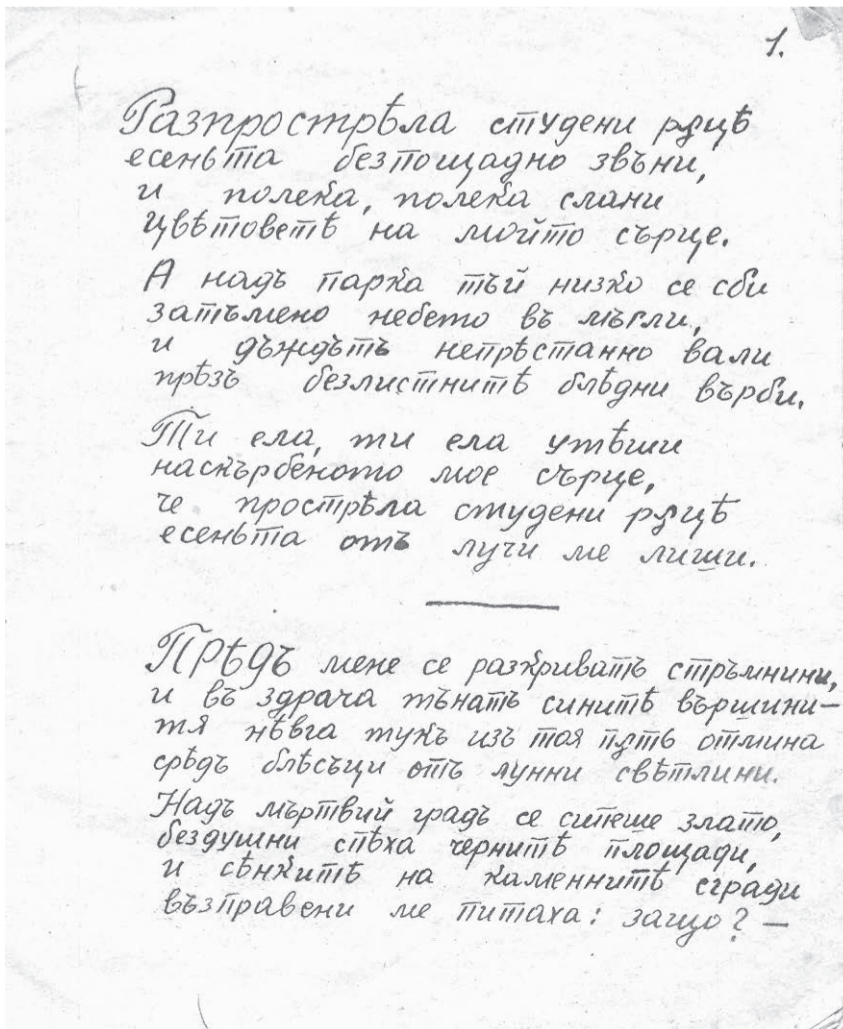 1.
Разпрострѣла студени рѫцѣ
есеньта безпощадно звъни,
и полека, полека слани
цвѣтоветѣ на мойто сърце.
А надъ парка тъй низко се сби
затъмено небето въ мъгли,
и дъждътъ непрѣстанно вали
прѣзъ безлистнитѣ блѣдни върби.
Ти ела, ти ела утѣши
наскърбеното мое сърце,
че прострѣла студени рѫцѣ
есеньта отъ лучи ме лиши.
Прѣдъ мене се разкриватъ стръмнини,
и въ здрача тънатъ синитѣ вършини—
тя нѣвга тукъ изъ тоя пѫть отмина
срѣдъ блѣсъци отъ лунни свѣтлини.
Надъ мъртвий градъ се сипеше злато,
бездушни спѣха чернитѣ площади,
и сѣнкитѣ на каменнитѣ сгради
възправени ме питаха: защо? —